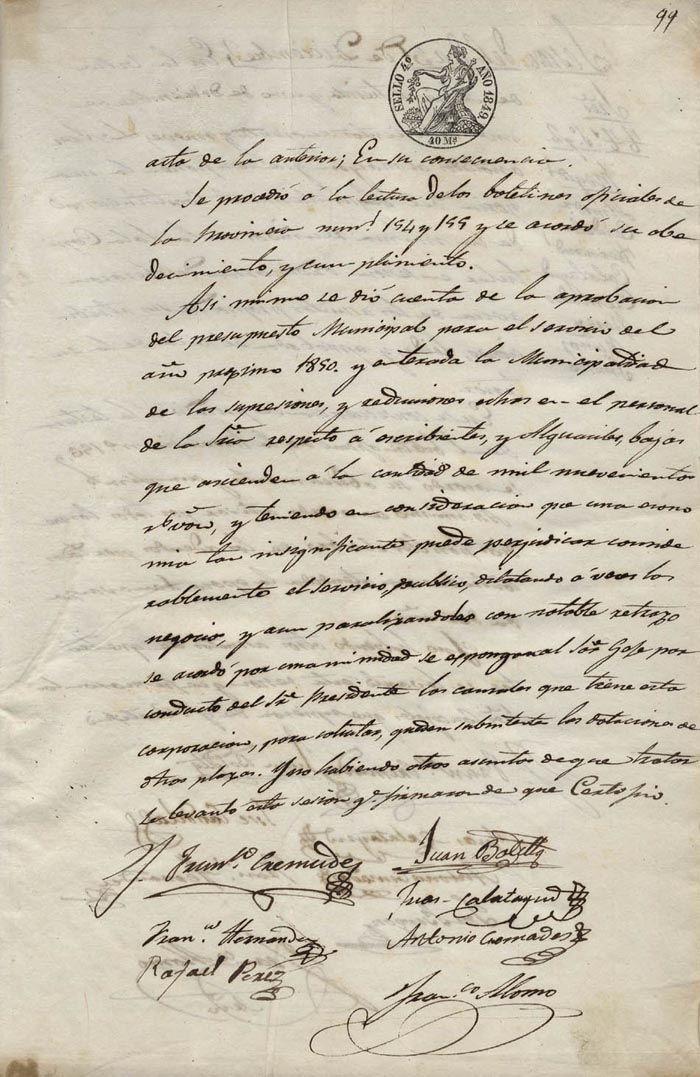 99
SELLO 4º AÑO 1849
40 Ms
acta de la anterior; En su consecuencia.
Se procedió á la lectura de los boletines oficiales de
la Provincia num.s 154 y 155 y se acordó su obe
decimiento, y cumplimiento.
Asi mismo se dió cuenta de la aprobacion
del presupuesto Municipal para el servicio del
año proximo 1850. y enterada la Municipalidad
de las supresiones, y reducciones echas en el personal
de la Sria respecto á escribientes, y Alguaciles, bajas
que ascienden á la cantidad de mil nuevecientos
rs von, y teniendo en consideracion que una econo
mia tan insignificante puede perjudicar conside
rablemente el servicio publico, dilatando á veces los
negocios, y aun paralizandoles con notable retrazo
se acordó por unanimidad se esponga al Sor Gefe por
conducto del Sr Presidente las causales que tiene esta
corporacion, para solicitar, queden subsistentes las dotaciones de
otras plazas. Y no habiendo otros asuntos de que tratar
se levantó esta sesion q.e firmaron de que Certifico.
Fran.co Cremades
Juan
Juan Calatayud
Fran.co Hernandez
Antonio Cremades
Rafael Perez
Fran.co Alomo